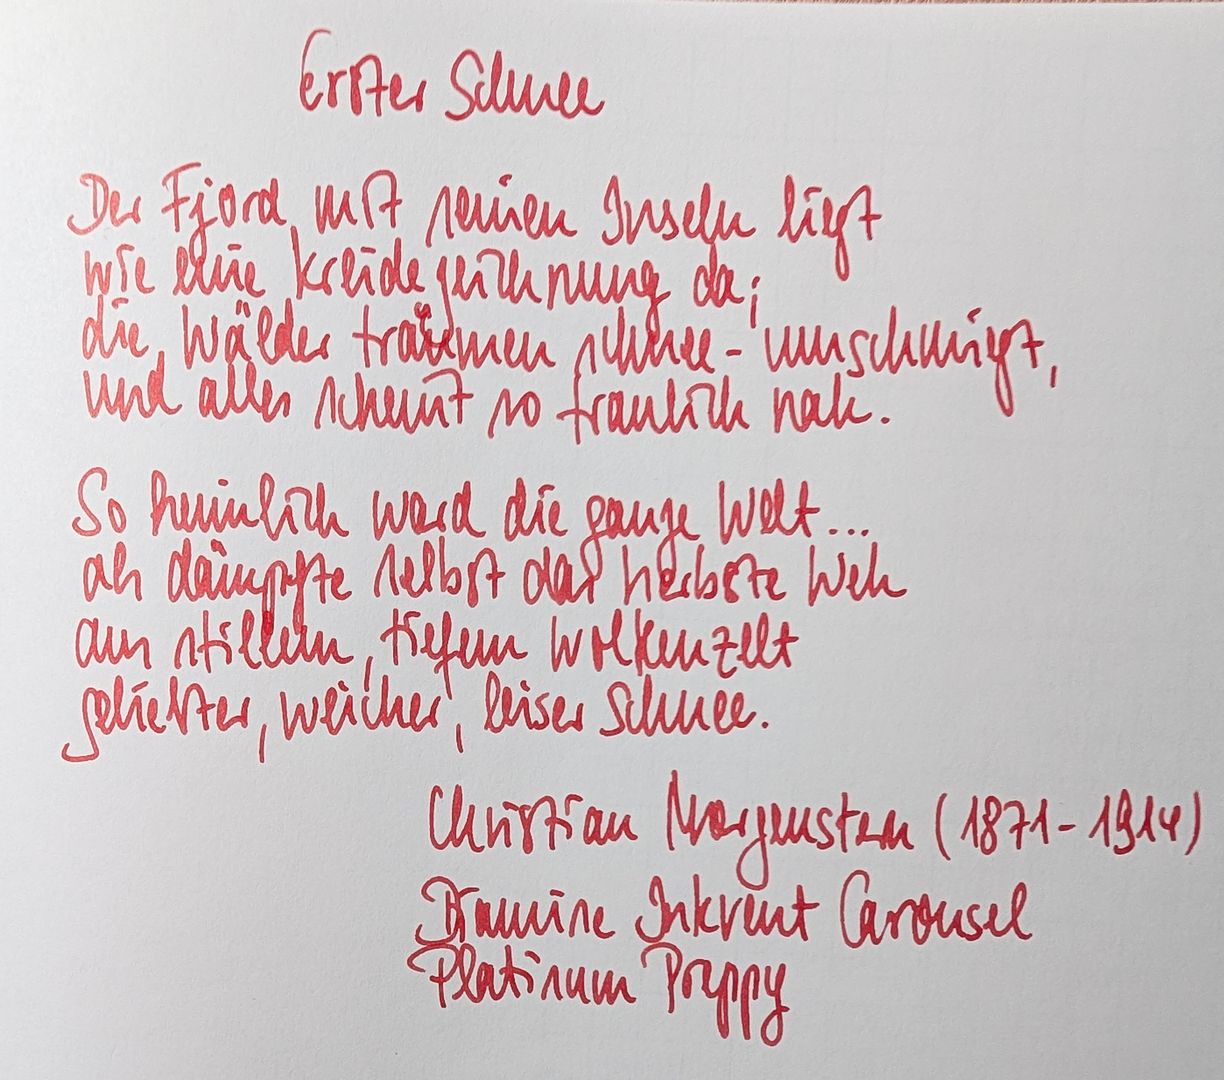 Erster Schnee
Der Fjord mit seinen Inseln liegt
wie eine Kreidezeichnung da;
die Wälder träumen schnee-umschmiegt,
und alles scheint so traulich nah.
So heimlich ward die ganze Welt...
als dämpfte selbst das herbste Weh
aus stillem, tiefem Wolkenzelt
geliebter, weicher, leiser Schnee.
Christian Morgenstern (1871-1914)
Diamine Inkvent Carousel
Platinum Preppy